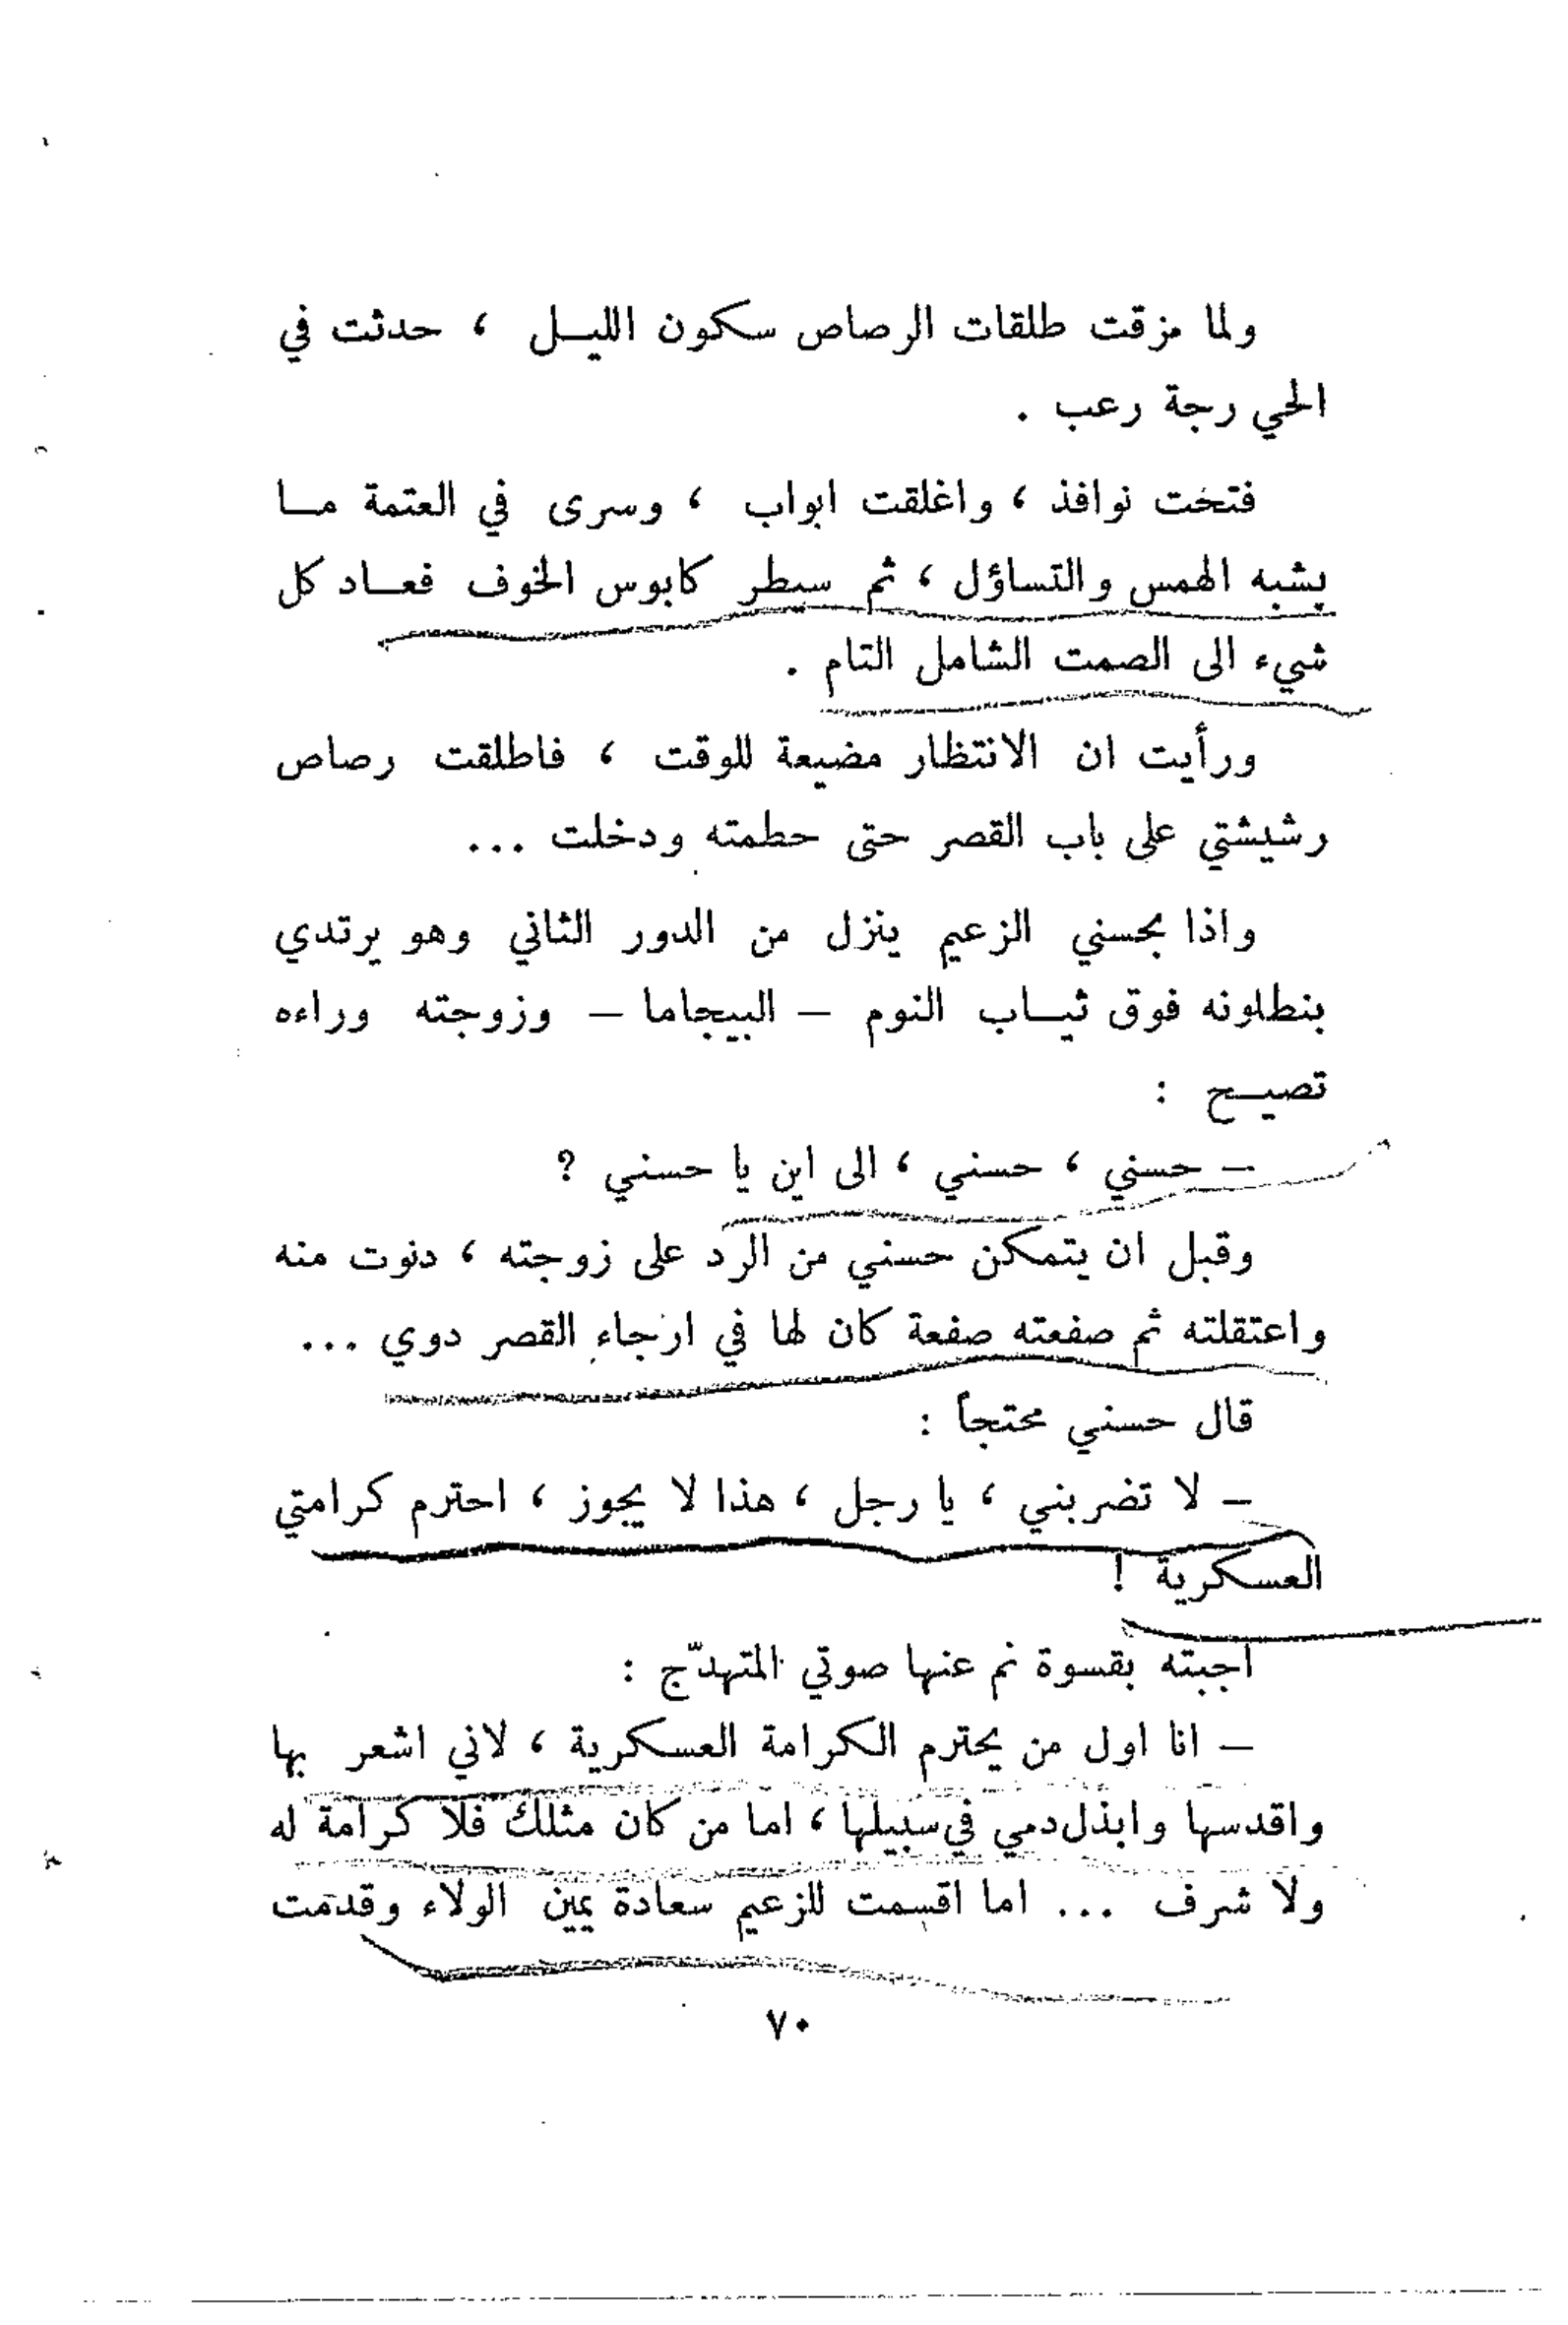 ولما مزقت طلقات الرصاص سكون الليـل ، حدثت في
الحي رجة رعب .
فتحت نوافذ ، واغلقت ابواب ، وسرى في العتمة مـا
يشبه الهمس والتساؤل ، ثم سيطر كابوس الخوف فعـاد كل
شيء الى الصمت الشامل التام .
ورأيت ان الانتظار مضيعة للوقت ، فاطلقت رصاص
رشيشتي على باب القصر حتى حطمته ودخلت ...
واذا بحسني الزعيم ينزل من الدور الثاني وهو يرتدي
بنطلونه فوق ثيـاب النوم – البيجاما – وزوجته وراءه
تصيـح :
– حسني ، حسني ، الى اين يا حسني ?
وقبل ان يتمكن حسني من الرد على زوجته ، دنوت منه
واعتقلته ثم صفعته صفعة كان لها في ارجاء القصر دوي ...
قال حسني محتجاً :
– لا تضربني ، يا رجل ، هذا لا يجوز ، احترم كرامتي
العسكرية !
اجبته بقسوة نم عنها صوتي المتهدّج :
– انا اول من يحترم الكرامة العسكرية ، لاني اشعر بها
واقدسها وابذل دمي في سبيلها ، اما من كان مثلك فلا كرامة له
ولا شرف ... اما اقسمت للزعيم سعادة يمين الولاء وقدمت
٧٠